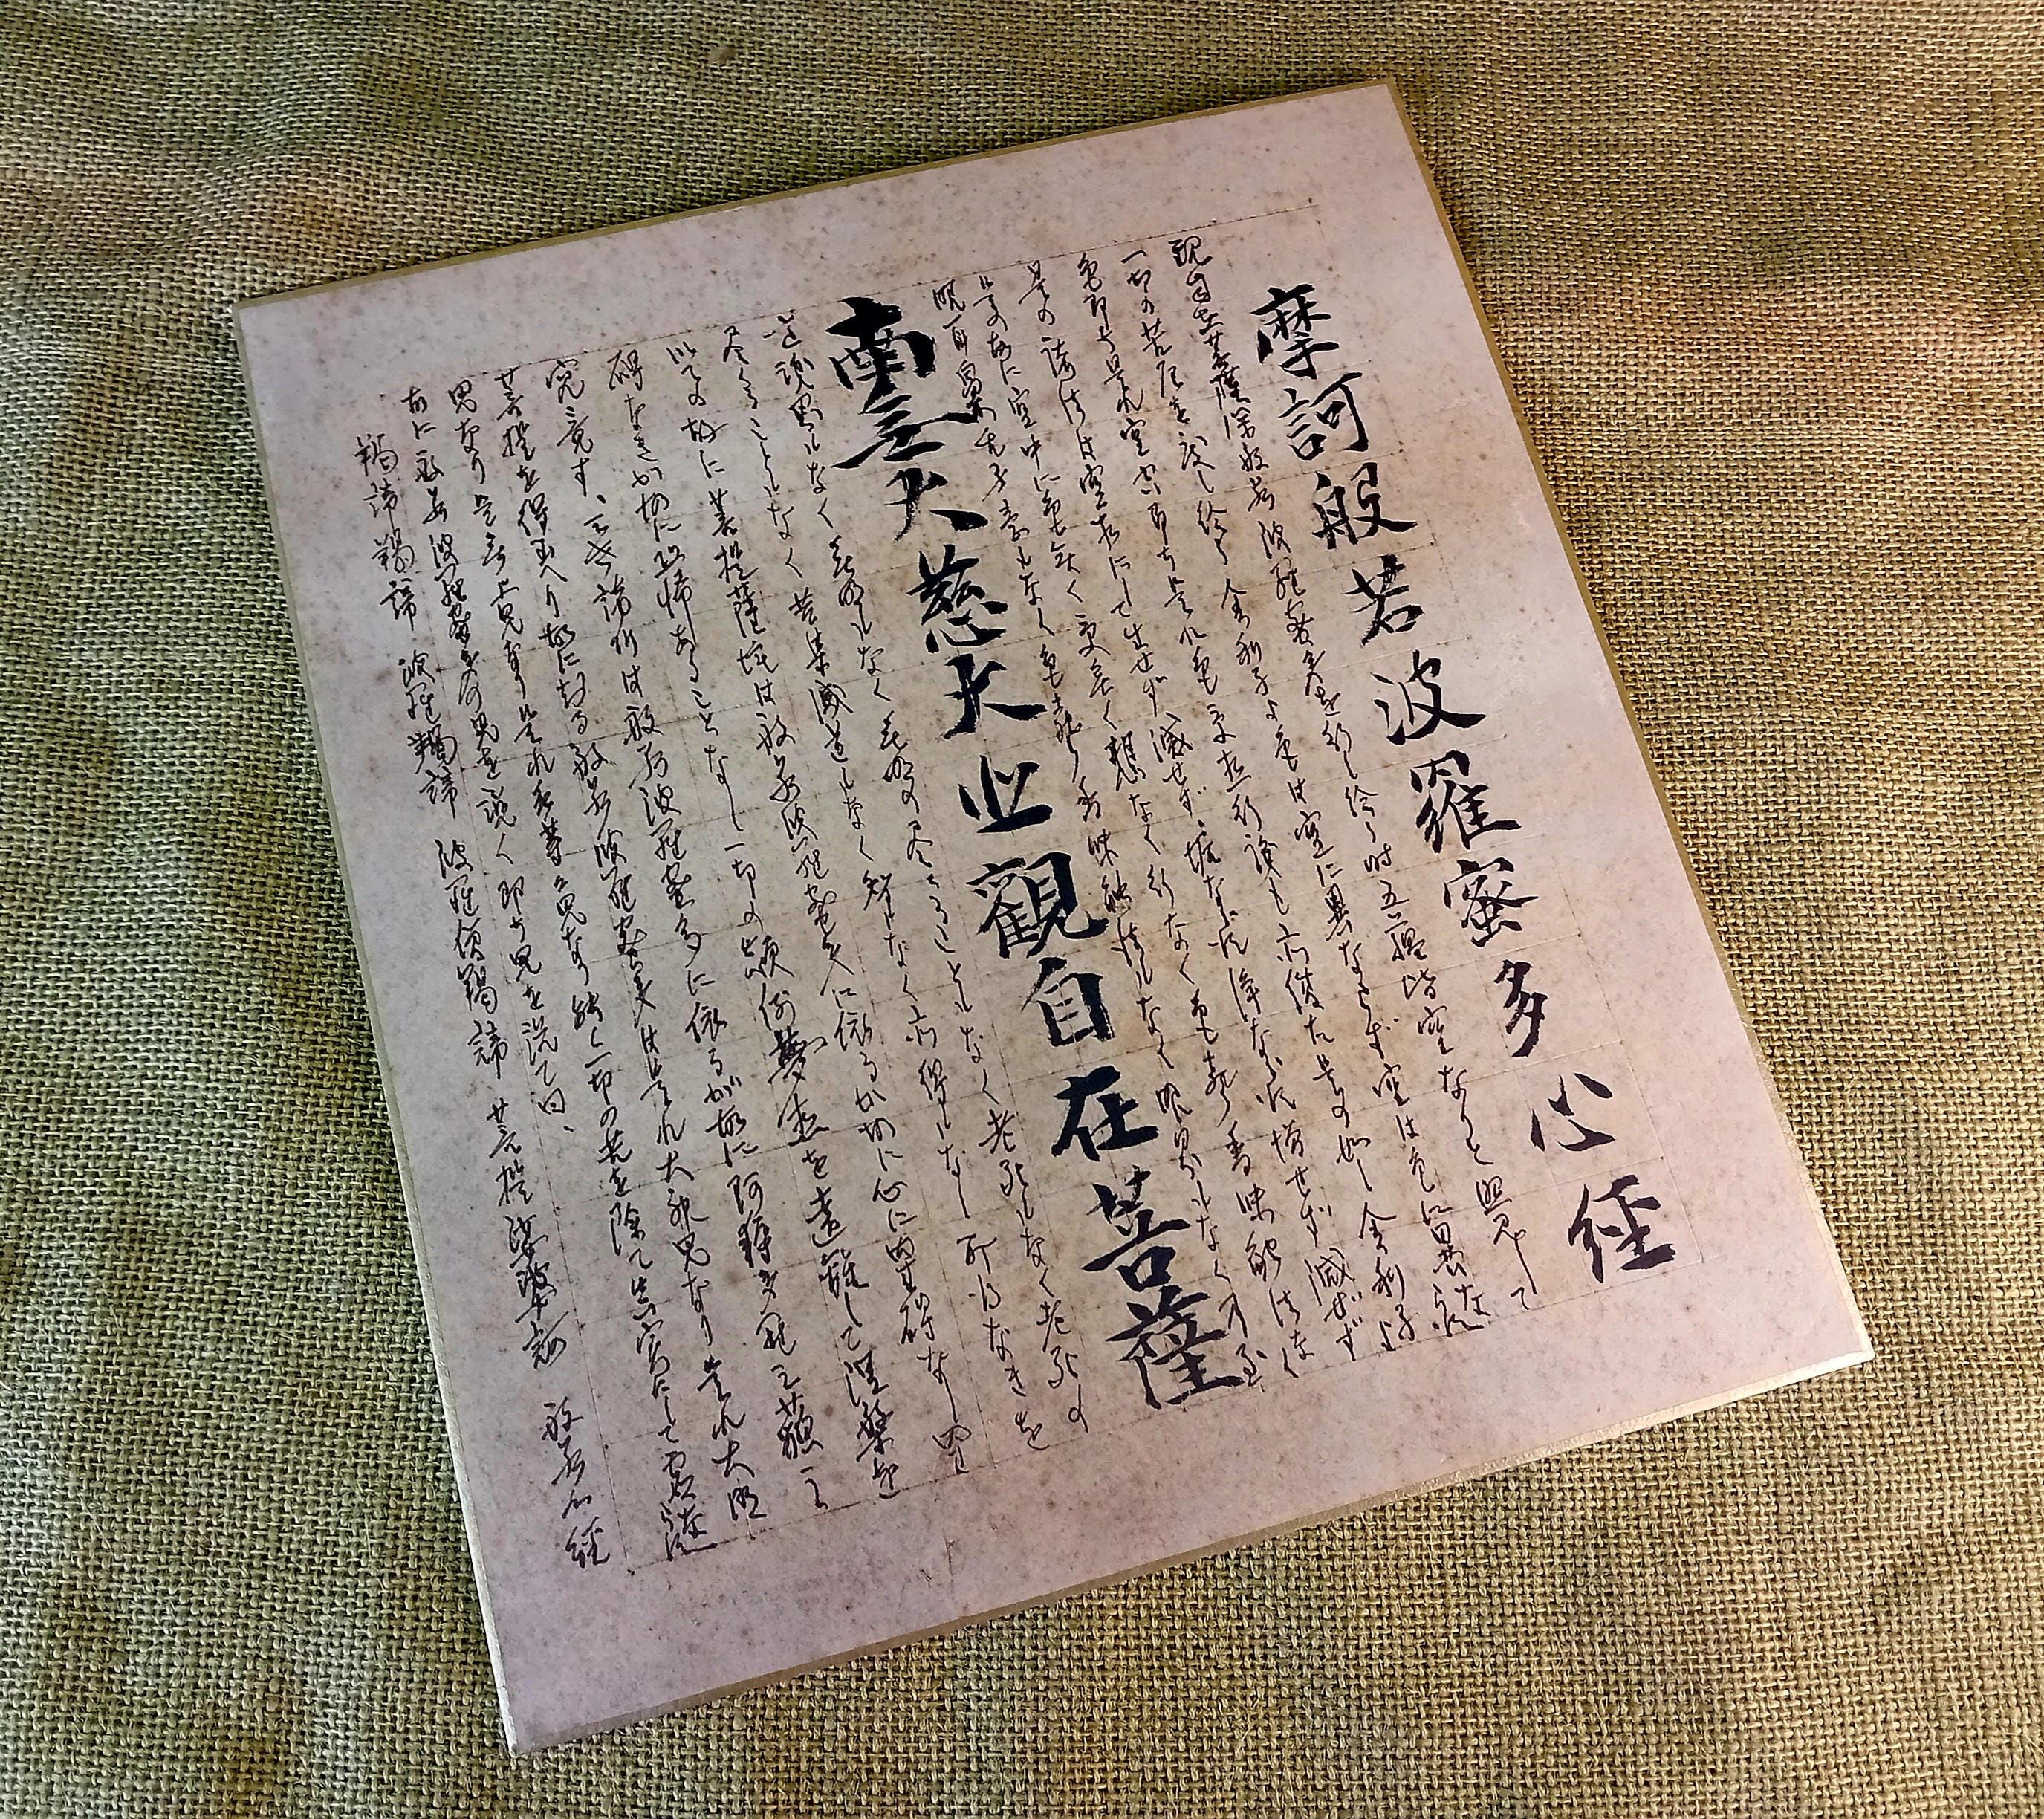 摩訶般若波羅蜜多心経
観自在菩薩深般若波羅蜜多を行し給ふ時五蘊皆空なりと照見して
一切の苦厄を度し給ふ 舎利子よ色は空に異ならず空は色に異ならず
色即ち是れ空空即ち是れ色受想行識も亦復た是の如し 舎利子よ
是の諸法は空相にして生せず滅せず、垢ならず浄ならず増せず減ぜず
是の故に空中に色も無く受も無く想なく行なく色も声も香味触法なく
眼耳鼻舌身意もなく色も声も香味触法もなく眼界もなく乃至
南無大慈大悲観自在菩薩
意識界もなく無明もなく無明の尽くることもなく老死もなく老死の
尽くることもなく苦集滅道もなく智もなく亦得もなし所得なきを
以ての故に菩提薩埵は般若波羅蜜多に依るが故に心に罣碍なし罣
碍なきが故に恐怖あることなし一切の顛倒夢想を遠離して涅槃を
究竟す、三世諸仏は般若波羅蜜多に依るが故に阿耨多羅三藐三
菩提を得玉へり故に知る般若波羅蜜多は是れ大神咒なり是れ大明
咒なり是無上咒なり是れ無等々咒なり能く一切の苦を除て真実にして虚ならず
故に般若波羅蜜多の咒を説く即ち咒を説て曰、
羯諦羯諦 波羅羯諦 波羅僧羯諦 菩提娑婆訶 般若心経